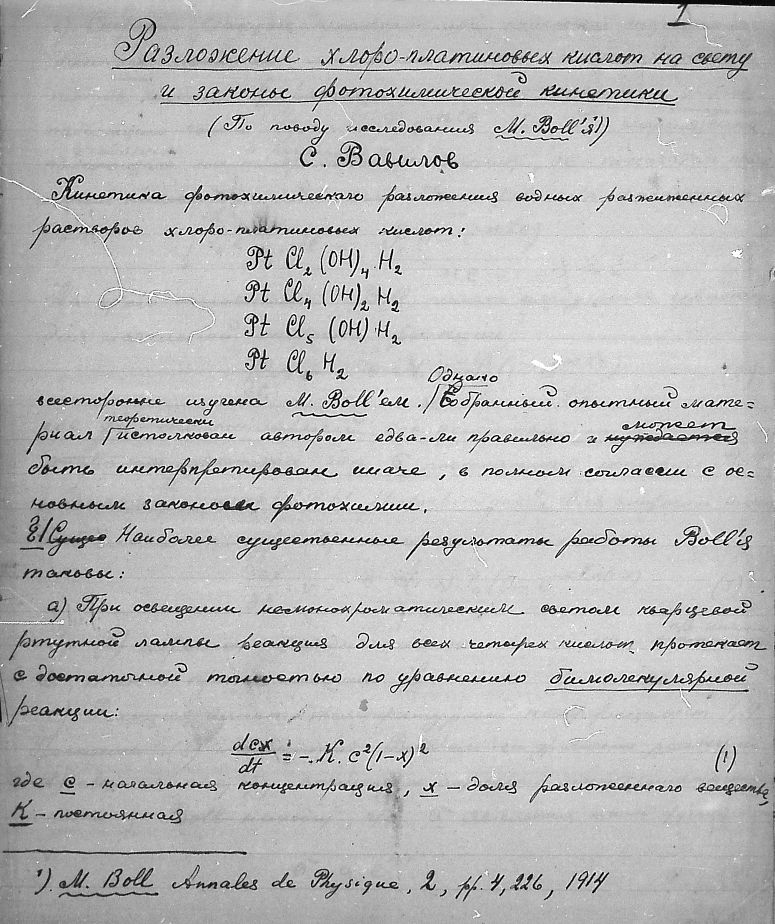 1
Разложение хлоро-платиновых кислот на свету
и законы фотохимической кинетики
(По поводу исследования M. Boll'я¹))
С. Вавилов
Кинетика фотохимическаго разложения водных разжиженных
растворов хлоро-платиновых кислот:
Pt Cl₂ (OH)₄ H₂
Pt Cl₄ (OH)₂ H₂
Pt Cl₅ (OH) H₂
Pt Cl₆ H₂
Однако
всесторонне изучена M. Boll'ем. Собранный опытный мате=
теоретически может
риал истолкован автором едва-ли правильно и нуждается
быть интерпретирован иначе, в полном согласии с ос=
новным законом фотохимии.
Сущес Наиболее существенные результаты работы Boll'я
таковы:
а) При освещении немонохроматическим светом кварцевой
ртутной лампы реакция для всех четырех кислот протекает
с достаточной точностью по уравнению бимолекулярной
реакции:
dcx/dt = -K.c²(1-x)² (1)
где c - начальная концентрация, x - доля разложеннаго вещества,
K - постоянная
¹). M. Boll Annales de Physique, 2, pp. 4, 226, 1914